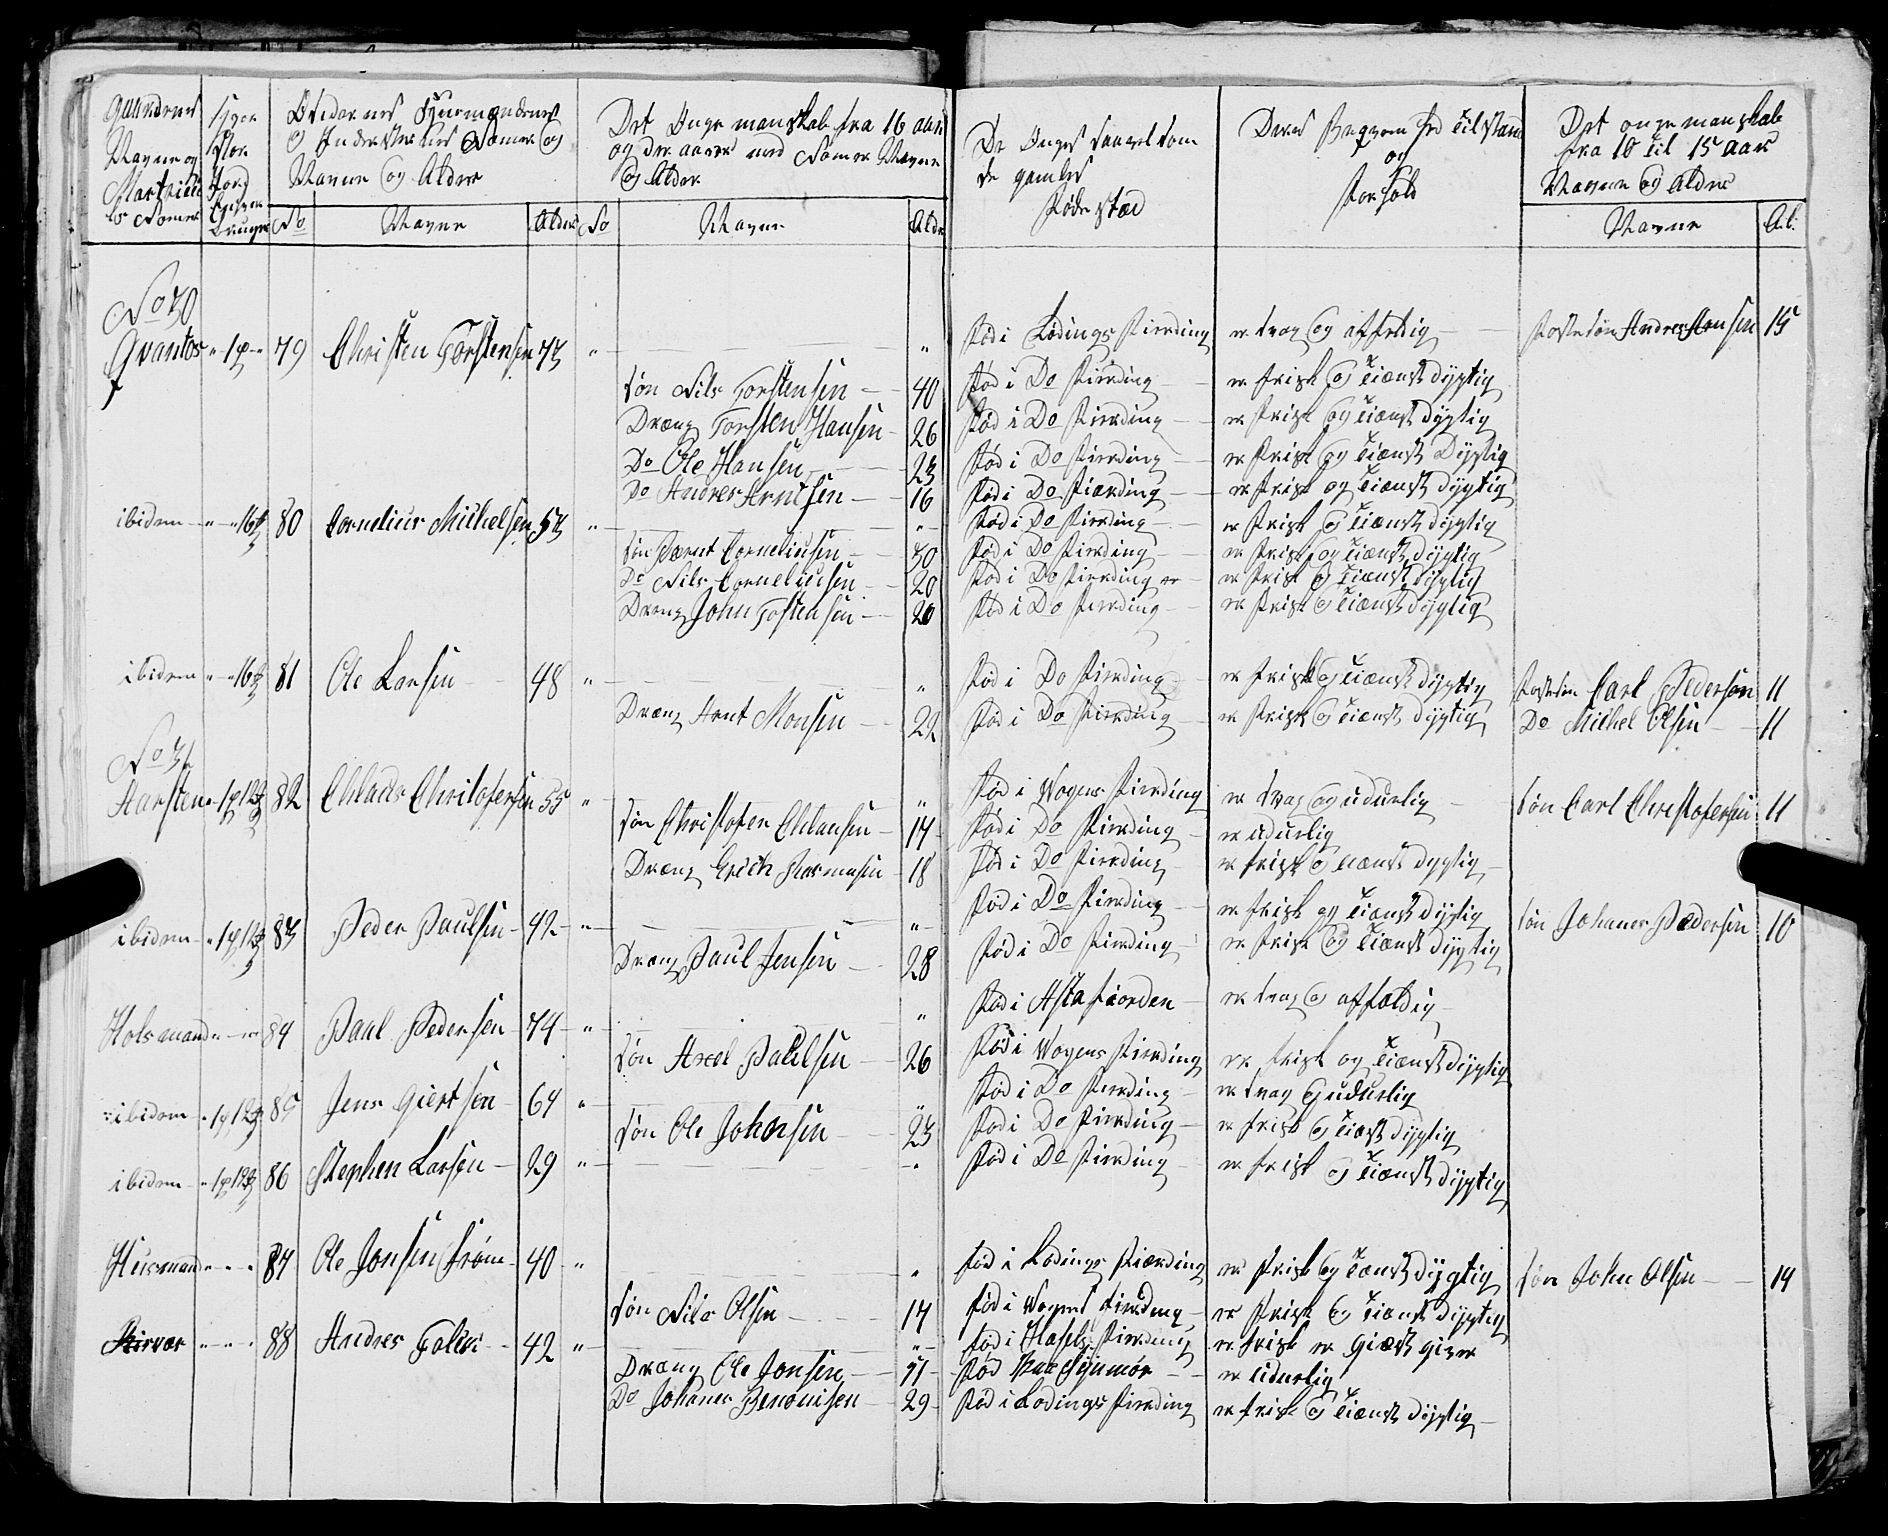 Gaardenes Navne og Matricul No
Øbedernes Huusmændernes og Inderster med Nomer og Navne og Alder
Det Unge mandskab fra 16 aar og der aaver med Nomer Navne og Alder
De Unges saavel som de gamles Føde stæd
Deres Beqvem hed Tilstand og Forhold
Det unge mandskab fra 10 til 15 aar Navne og Alder
No Navne Alder No Navne Alder Navne Al.
No 30
Qvantos 1 p 79 Christen Torstensen 73 " " Fød i Lødings Fierding er svag og affeldig Fostersøn Andres Hansen 15
Søn Nils Torstensen 40 Fød i Do Fierding er frisk og tienst dygtig
Dræng Torsten Hansen 26 Fød i Do Fierding er frisk og tienst dygtig
Do Ole Hansen 23 Fød i Do Fierding er frisk og tienst Dygtig
Do Andres Arntsen 16 Fød i Do Fierding er frisk og tienst dygtig
ibidem 16 80 Cornelius Mikelsen 53 " " Fød i Do Fierding er frisk og tienst dygtig
Søn Bærnt Corneliusen 30 Fød i Do Fierding er frisk og tienst dygtig
Do Nils Corneliusen 20 Fød i Do Fierding er frisk og tienst dygtig
Dræng John Tostensen 20 Fød i Do Fierding er frisk og tienst dygtig
ibidem 16 81 Ole Larsen 48 " " Fød i Do Fierding er frisk og tienst dygtig Fostersøn Carl Pedersen 11
Dræng Arnt Monsen 22 Fød i Do Fierding er frisk og tienst dygtig Do Mikel Olsen 11
No 31
Harsten 1 p 12 82 Chlads Christofersen 55 " " Fød i Wogens Fierding er svag og udurlig Søn Carl Christofersen 11
Søn Christofer Chlausen 17 Fød i Do Fierding er udurlig
Dræng Erich Rasmusen 18 Fød i Do Fierding er frisk og tienst dygtig
ibidem 1 p 12 83 Peder Paulsen 42 " " Fød i Do Fierding er frisk og tienst dygtig Søn Johanes Pedersen 10
Dræng Paul Jensen 28 Fød i Do Fierding er frisk og tienst dygtig
Holsmand 84 Paul Pedersen 74 " " Fød i Astafiorden er svag og affældig
Søn Axel Paulsen 26 Fød i Wogens Fierding er frisk og tienst dygtig
ibidem 1 p 12 85 Jens Giertsen 64 " " Fød i Do Fierding er svag og udurlig
Søn Ole Johansen 23 Fød i Do Fierding er frisk og tienst dygtig
ibidem 1 p 12 86 Stephen Larsen 29 " " Fød i Do Fierding er frisk og tienst dygtig
Husmand 87 Ole Jonsen Frøm 40 " " Fød i Lødings Fierding er frisk og tienst dygtig Søn John Olsen 14
Søn Nils Olsen 17 Fød i Wogens Fierding er frisk og tienst dygtig
88 Andres 42 " " Fød i Hasels Fierding er frisk er giæst giver
Dræng Ole Jonsen 51 Fød er udurlig
Do Johanes Benonisen 29 Fød i Lødings Fierding er frisk og tienst dygtig